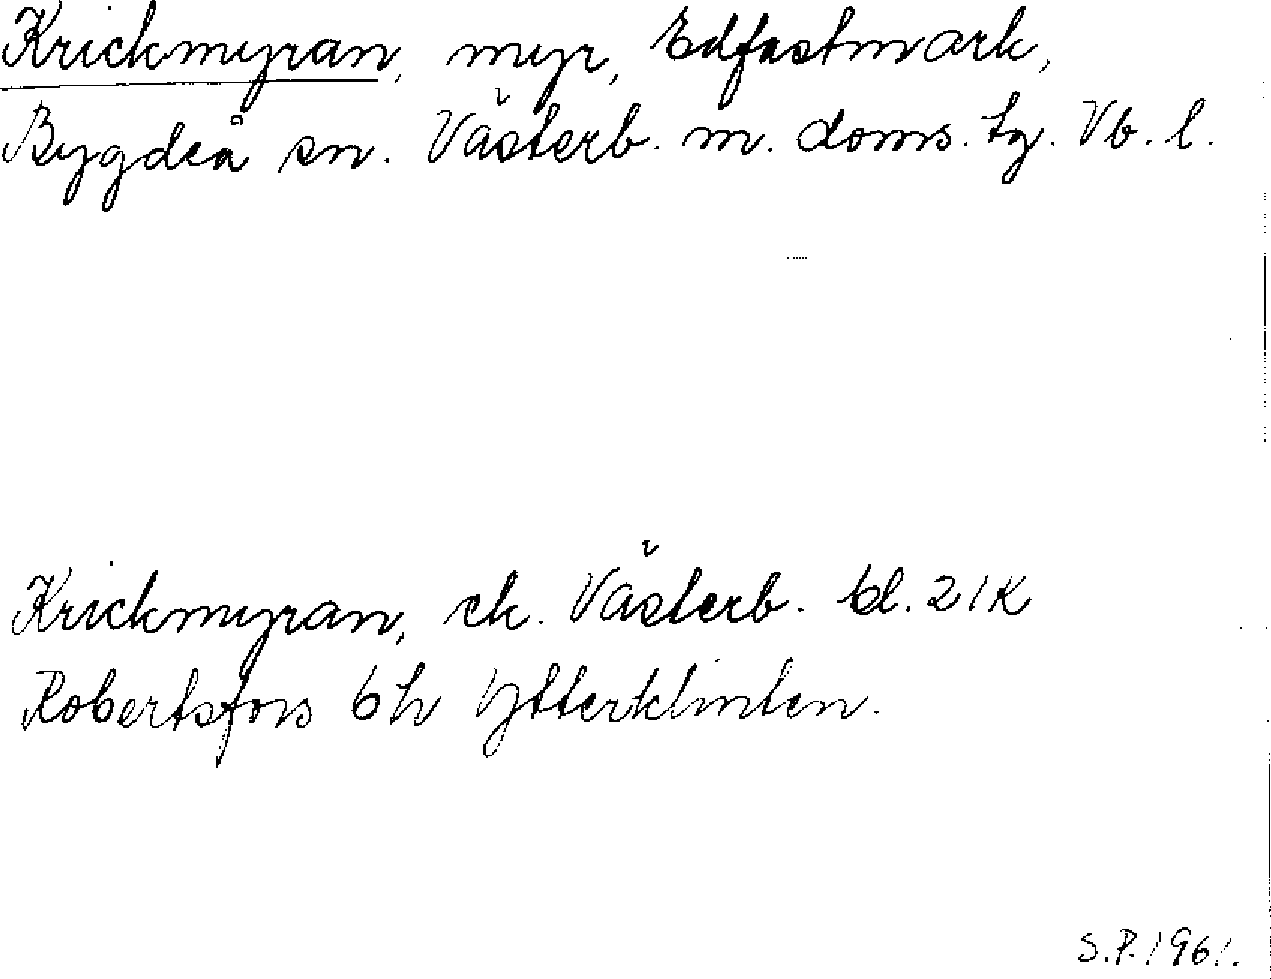 Krickmyran, myr, Edfastmark,
Bygdeå sn. Västerb. m. doms. tg. Vb. l.
Krickmyran, ek. Västerb. bl. 21K
Robertsfors 6h Ytterklinten.
S.P. 1961.